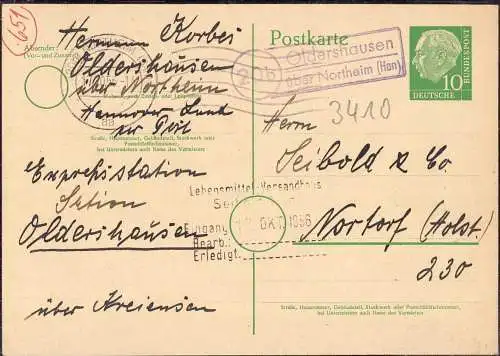 (651)
Absender:
(Vor- und Zuname)
Hermann Korbes
Oldershausen
über Northeim
Hannover Land
per Post
Straße, Hausnummer, Gebäudeteil, Stockwerk oder
Postschließfachnummer,
bei Untermietern auch Name des Vermieters
Expreßstation
Station
Oldershausen
über Kreiensen
Postkarte
(20b) Oldershausen
über Northeim (Han)
10
DEUTSCHE
BUNDESPOST
3410
Herrn
Seibold & Co.
Lebensmittel-Versandhaus
Eingang OKT. 1956
Bearb.:
Erledigt
Nortorf (Holst.
230
Straße, Hausnummer, Gebäudeteil, Stockwerk oder Postschließfachnummer,
bei Untermietern auch Name des Vermieters